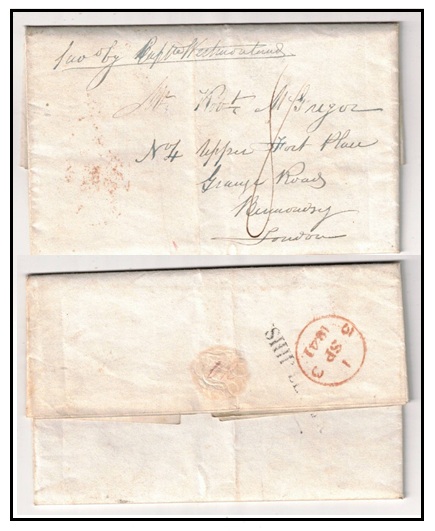 by Capt Westmorland
Mr Robt McGregor
No 4 Upper Fort Place
Grange Road
Bermondsey
London
8
SHIP LE
1
SP 3
1841